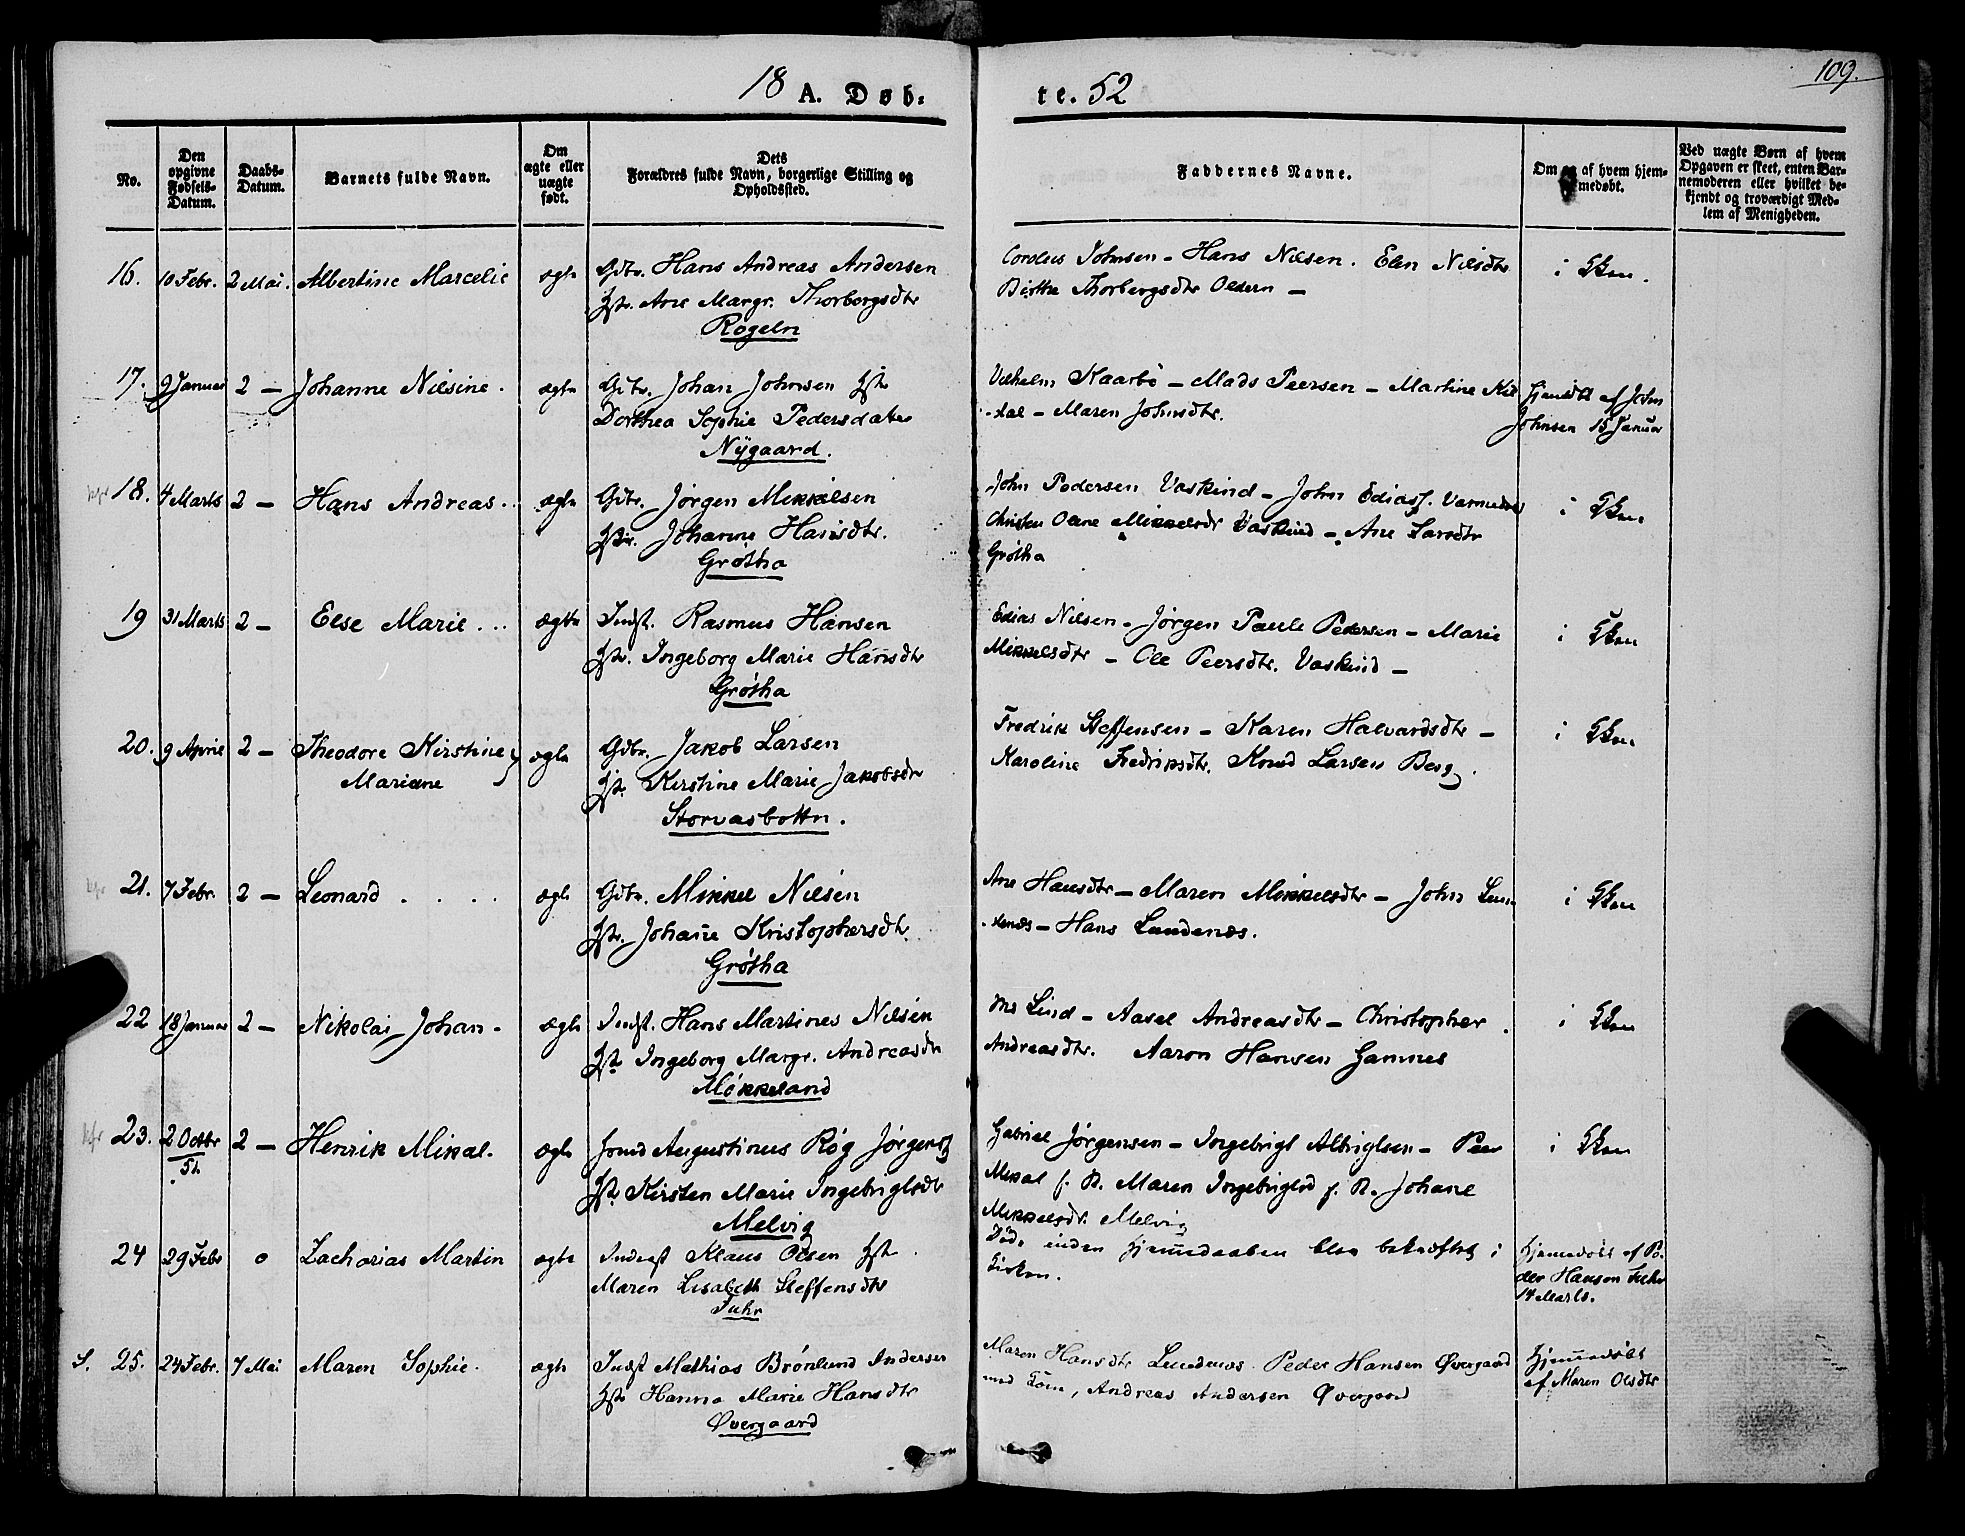 18 A. Døb-
te. 52
109.
No.
Den opgivne Fødsels-Datum.
Daabs-Datum.
Barnets fulde Navn.
Om ægte eller uægte født.
Dets Forældres fulde Navn, borgerlige Stilling og Opholdssted.
Faddernes Navne.
Om og af hvem hjemmedøbt.
Ved uægte Børn af hvem Opgaven er skeet, enten Barnemoderen eller hvilket bekjendt og troværdigt Medlem af Menigheden.
16. 10 Febr. 2 Mai. Albertine Marcelie ægte Gdbr. Hans Andreas Andersen
Hstr. Ane Margr. Thorbergsdtr
Rogeln
Cordeus Johnsen - Hans Nilsen. Elen Nilsdtr
Birthe Thorbergsdtr Oldern -
i Kken.
17. 9 Januar 2 - Johanne Nilsine. ægte Gdbr. Johan Johnsen Hstr
Dorthea Sophie Pedersdatter
Nÿgaard.
Vilhelm Kaarbø - Mads Peersen - Martine Kil
-dal - Maren Johnsdtr.
Hjemdbt af John
Johnsen 15 Januar
18. 4 Marts 2 - Hans Andreas.. ægte Gdbr. Jørgen Mikkelsen
Hstr. Johanne Hansdtr.
Grøtha
John Pedersen Vaskind - John Ediass.
Mikkelsdr Vaskind - Ane Larsdtr
Grøtha
i Kken
19 31 Marts 2 - Else Marie... ægte Indst. Rasmus Hansen
Hstr. Ingeborg Marie Hansdtr
Grøtha
Edias Nilsen - Jørgen Paule Pedersen - Marie
Mikkelsdtr - Ole Peersdtr. Vaskind -
i Kken
20. 9 April 2 - Theodore Kirstine
Mariane
ægte Gdbr. Jakob Larsen
Hstr. Kirstine Marie Jakobsdr
Storvasbottn.
Fredrik Steffensen - Karen Halvardsdtr -
Karoline Fredriksdtr. Knud Larsen Berg.
i Kken
21. 7 Febr. 2 - Leonard.... ægte Gdbr. Mikkel Nilsen
Hstr. Johane Kristophersdtr.
Grøtha
Ane Hansdtr - Maren Mikkelsdtr - John Lun
-denæs - Hans Lundenæs.
i Kken
22 18 Januar 2 - Nikolai Johan - ægte Indst. Hans Martines Nilsen
Hstr Ingeborg Margr. Andreasdtr
Møkkeland
Lind - Aasel Andreasdtr - Christopher
Andreasdtr. Aaron Hansen Gamnes
i Kken
23. 2 Octbr
51.
2 - Henrik Mikal. ægte Augustinus Røg Jørgens
Hstr Kirsten Marie Ingebrigtsdtr
Melvig
Gabriel Jørgensen - Ingebrigt Albrigtsen - Peer
Mikal f. B. Maren Ingebrigtsd f. B. Johane
Mikkelsdr. Melvig
i Kken
24 29 Febr 0 Zacharias Martin ægte Inderst Klaus Olsen Hstr.
Maren Lisabeth Steffensdtr
Fuhr
Døde inden Hjemmedaaben blev bekræftet i
Kirken.
Hjemmedøbt af Pe-
der Hansen Fuhr
14 Marts.
S. 25. 24 Febr. 7 Mai Maren Sophie. ægte Indst Mathias Brønlund Andersen
Hstr Hanna Marie Hansdtr
Øvergaard
Maren Hansdtr Lundenæs. Peder Hansen Øvergaard
med Kone, Andreas Andersen Øvergaard
Hjemmedøbt
af Maren Olsdtr